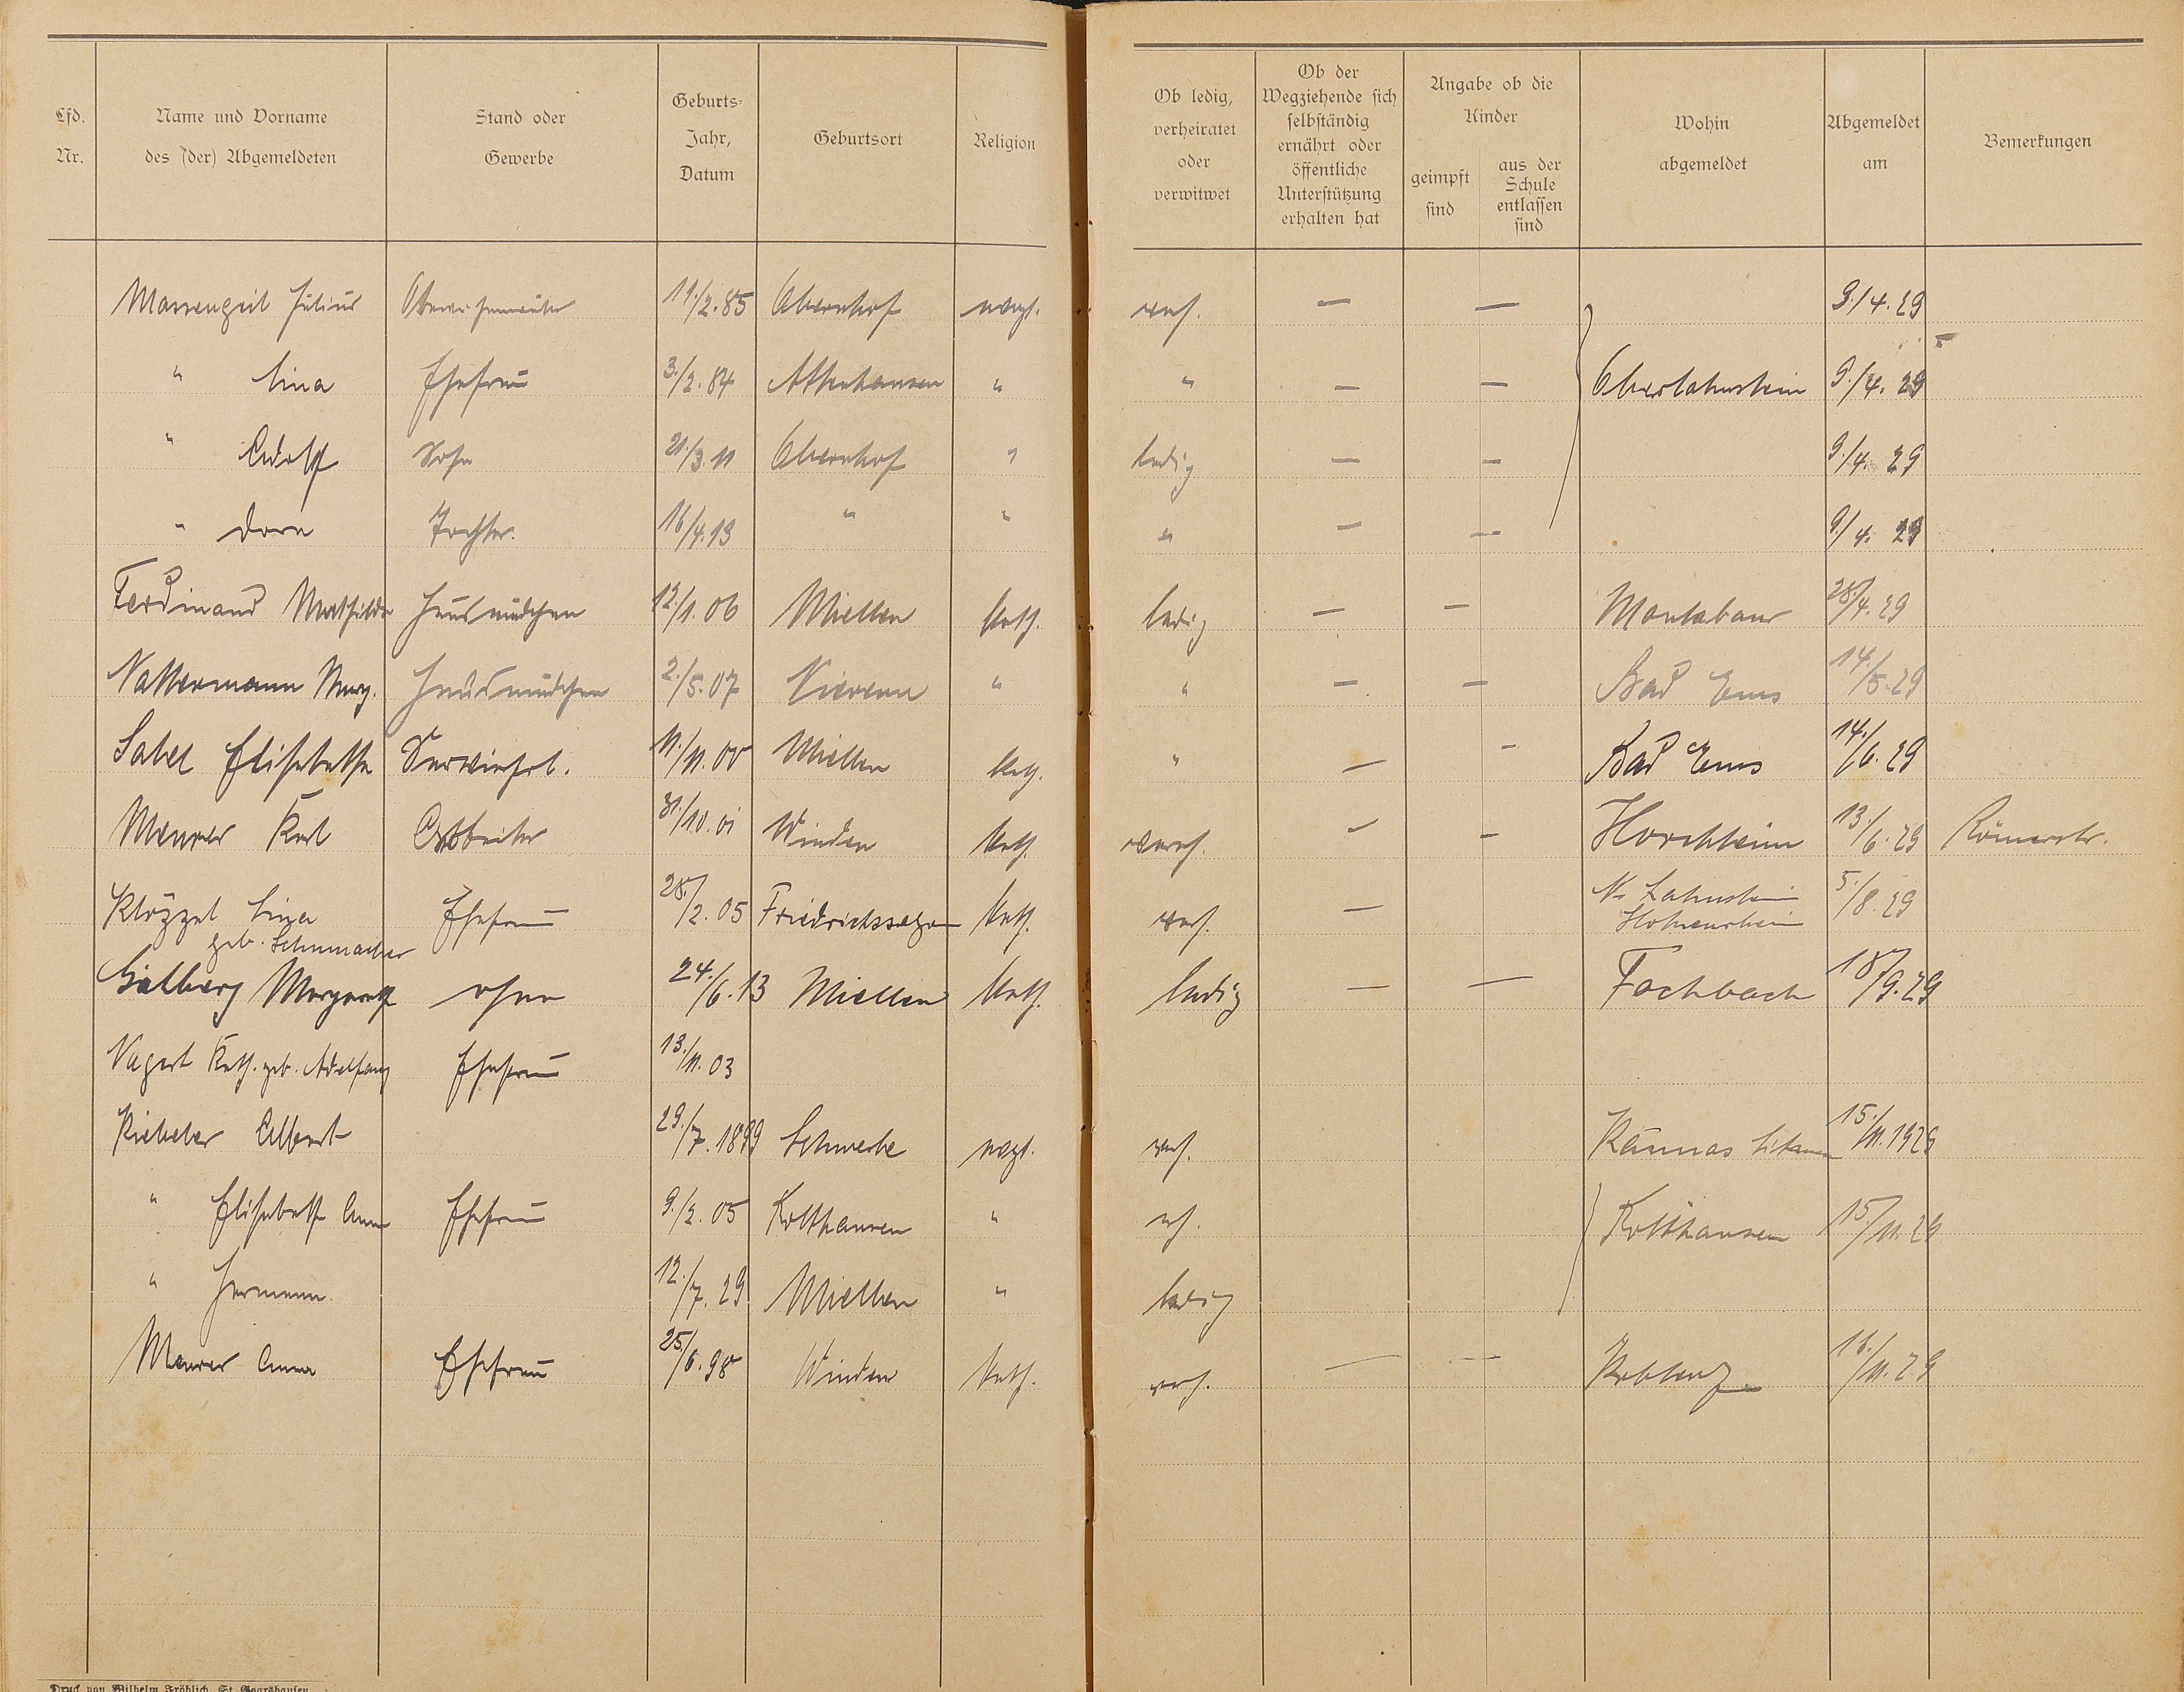 Lfd. Nr.
Name und Vorname des (der) Abgemeldeten
Stand oder Gewerbe
Geburts-Jahr, Datum
Geburtsort
Religion
Ob ledig, verheiratet oder verwitwet
Ob der Wegziehende sich selbständig ernährt oder öffentliche Unterstützung erhalten hat
Angabe ob die Kinder
geimpft sind
aus der Schule entlassen sind
Wohin abgemeldet
Abgemeldet am
Bemerkungen
Massengeil Julius 11./2.85 Obernhof evgl. verh. — — 9./4.29
" Lina Ehefrau 3./2.84 Attenhausen " " — — Oberlahnstein 9./4.29
" Adolf Sohn 21./3.11 Obernhof " ledig — — 9./4.29
" Dora Tochter. 16./4.13 " " " — — 9./4.29
Ferdinand Mathilde Hausmädchen 12./1.06 Miellen kath. ledig — — Montabaur 28./4.29
Nattermann Marg. Hausmädchen 2./5.07 Nievern " " — — Bad Ems 14./5.29
Sabel Elisabetha Servierfrl. 11./11.08 Miellen kath. " — — Bad Ems 14./6.29
Meurer Karl Arbeiter 31./10.01 Winden kath. verh. — — Horchheim 13./6.29 Römerstr.
Klözzel Lina Ehefrau 28./2.05 Friedrichssegen kath. verh. — N. Lahnstein 5./8.29
geb. Schumacher Hohenrhein
Gilberg Margareth ohne 24./6.13 Miellen kath. ledig — — Fachbach 18./9.29
Kath. geb. Adelfang Ehefrau 13./11.03
Albert 29./7.1899 evgl. verh. Kaunas Litauen 15./11.1929
" Elisabeth Anna Ehefrau 9./2.05 Kotthausen " vh. Kotthausen 15./11.29
" Hermann. 12./7.29 Miellen " ledig
Meurer Anna Ehefrau 25./6.98 Winden kath. verh. — — Koblenz 16./11.29
Druck von Wilhelm Fröhlich, St. Goarshausen